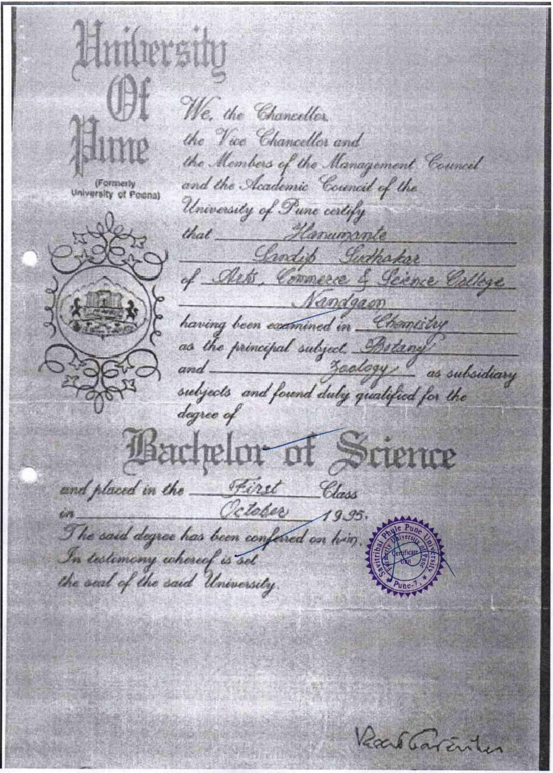 University
Of
Pune
(Formerly
University of Poona)
We, the Chancellor,
the Vice Chancellor and
the Members of the Management Council
and the Academic Council of the
University of Pune certify
that Hanumante
Sandip Sudhakar
of Arts, Commerce & Science College
Nandgaon
having been examined in Chemistry
as the principal subject, Botany
and Zoology as subsidiary
subjects and found duly qualified for the
degree of
Bachelor of Science
and placed in the First Class
in October 1995.
The said degree has been conferred on him.
In testimony whereof is set
the seal of the said University.
Savitribai Phule Pune University
Pune-7.